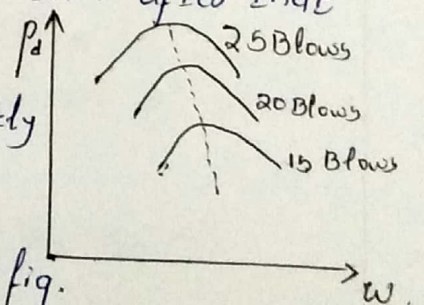 ρd
25 Blows
20 Blows
15 Blows
fig.
w.